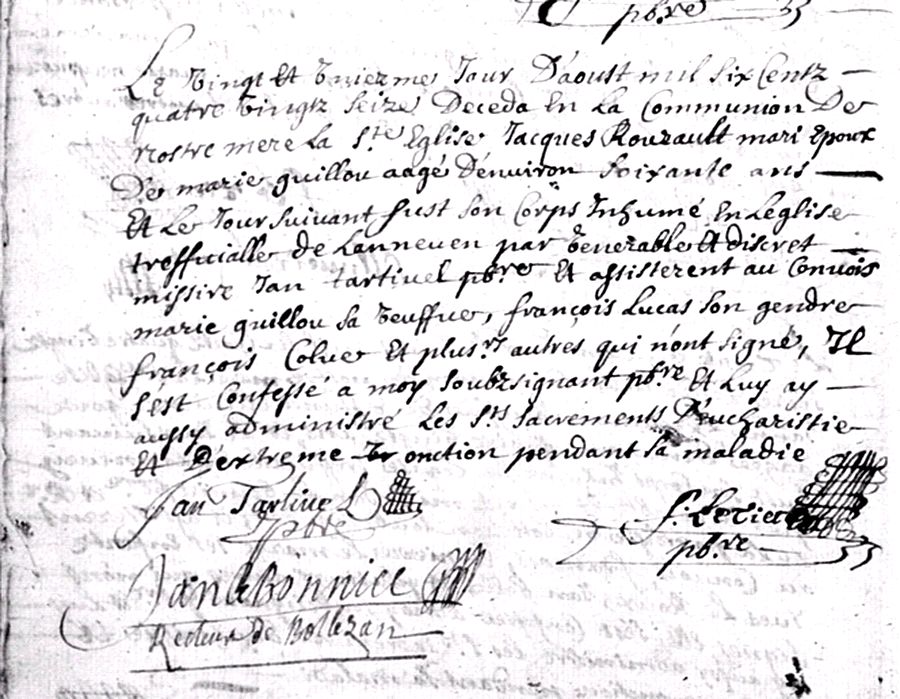 pbre
Le vingt et vniezme Jour D'aoust mil six Centz
quatre vingtz seize Deceda En La Communion De
Nostre mere La Ste Eglise Jacques Rouzault mari Epoux
De marie guillou aagé D'environ soixante ans
Et Le Jour suivant fust son Corps Inhumé En Leglise
treffuialle de Lanneuen par venerable Et discret
missire Jan tartivel pbre Et assisterent au Convois
marie guillou sa veuffue, françois Lucas son gendre
françois Colue Et plusrs autres qui n'ont signé, Il
s'est Confessé a moy soubzsignant pbre Et Luy ay
aussy administré Les Sts Sacrements D'eucharistie
Et D'extreme onction pendant sa maladie
Jan Tartivel
pbre
pbre
Jan Lebonniec
Recteur de Bothezan